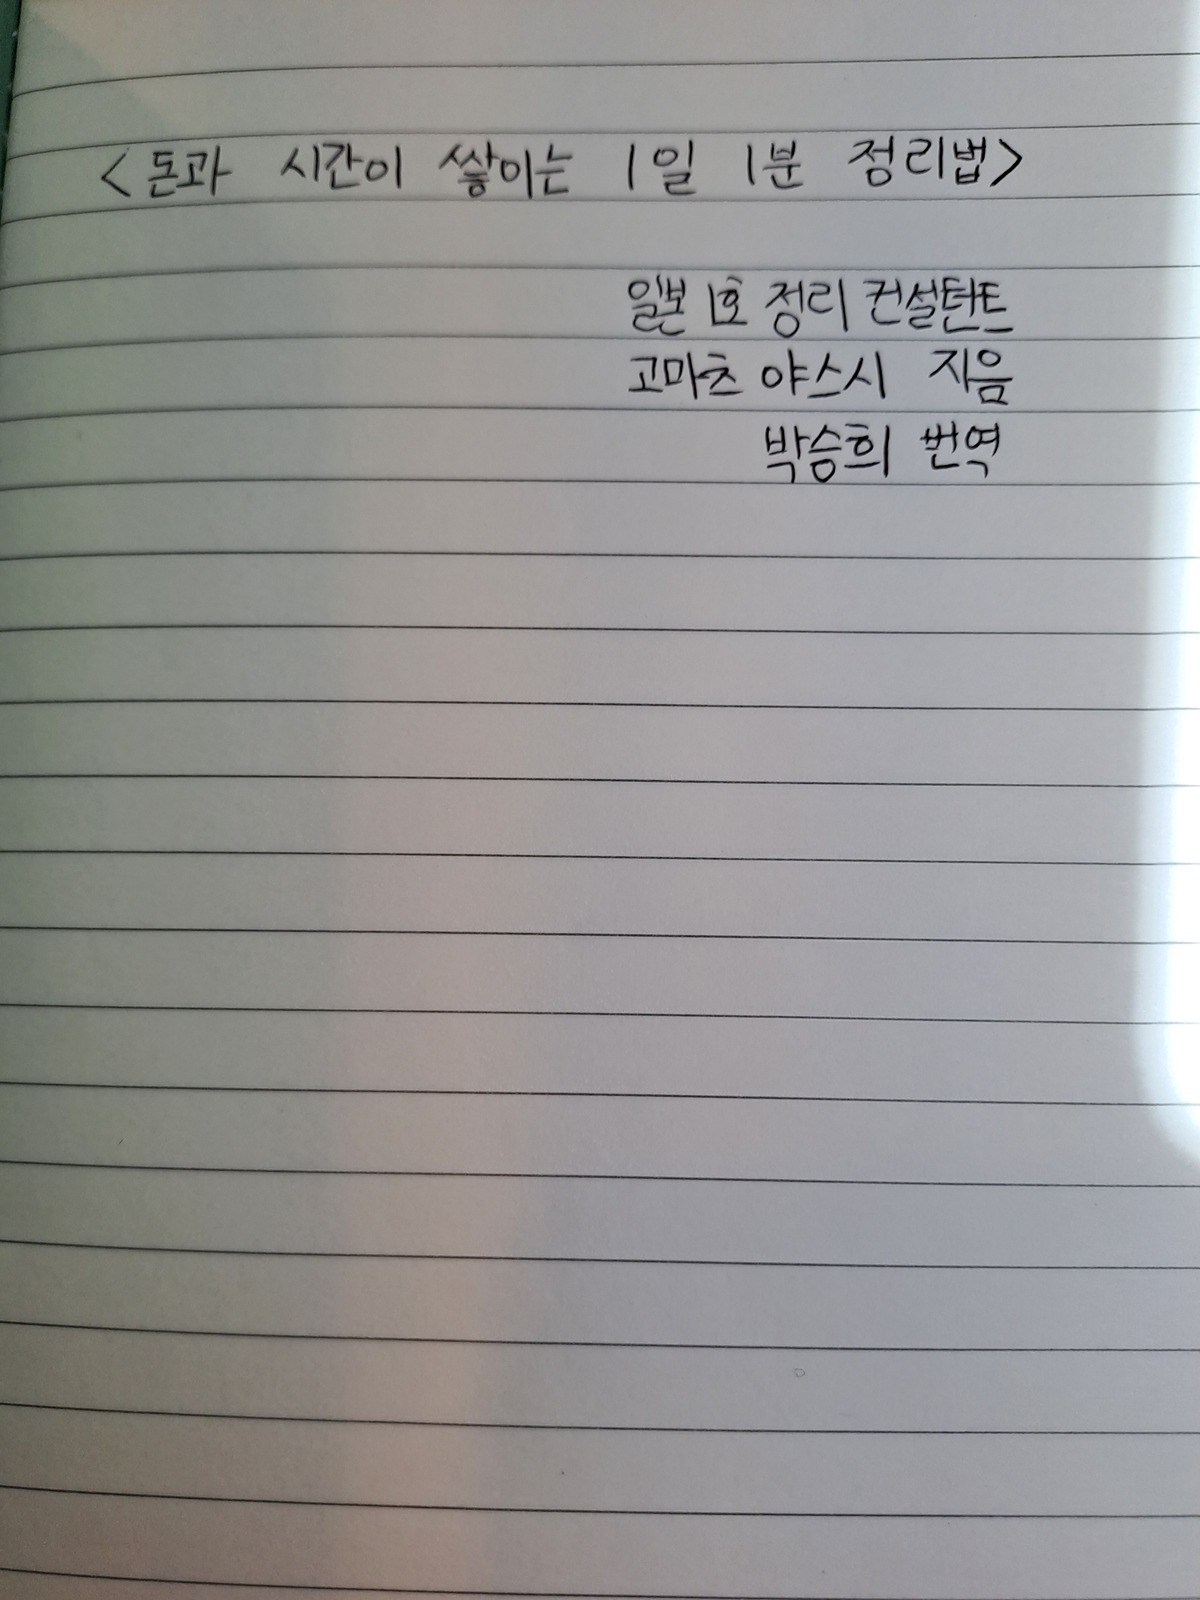 <돈과 시간이 쌓이는 1일 1분 정리법>
일본 1호 정리 컨설턴트
고마츠 야스시 지음
박승희 번역